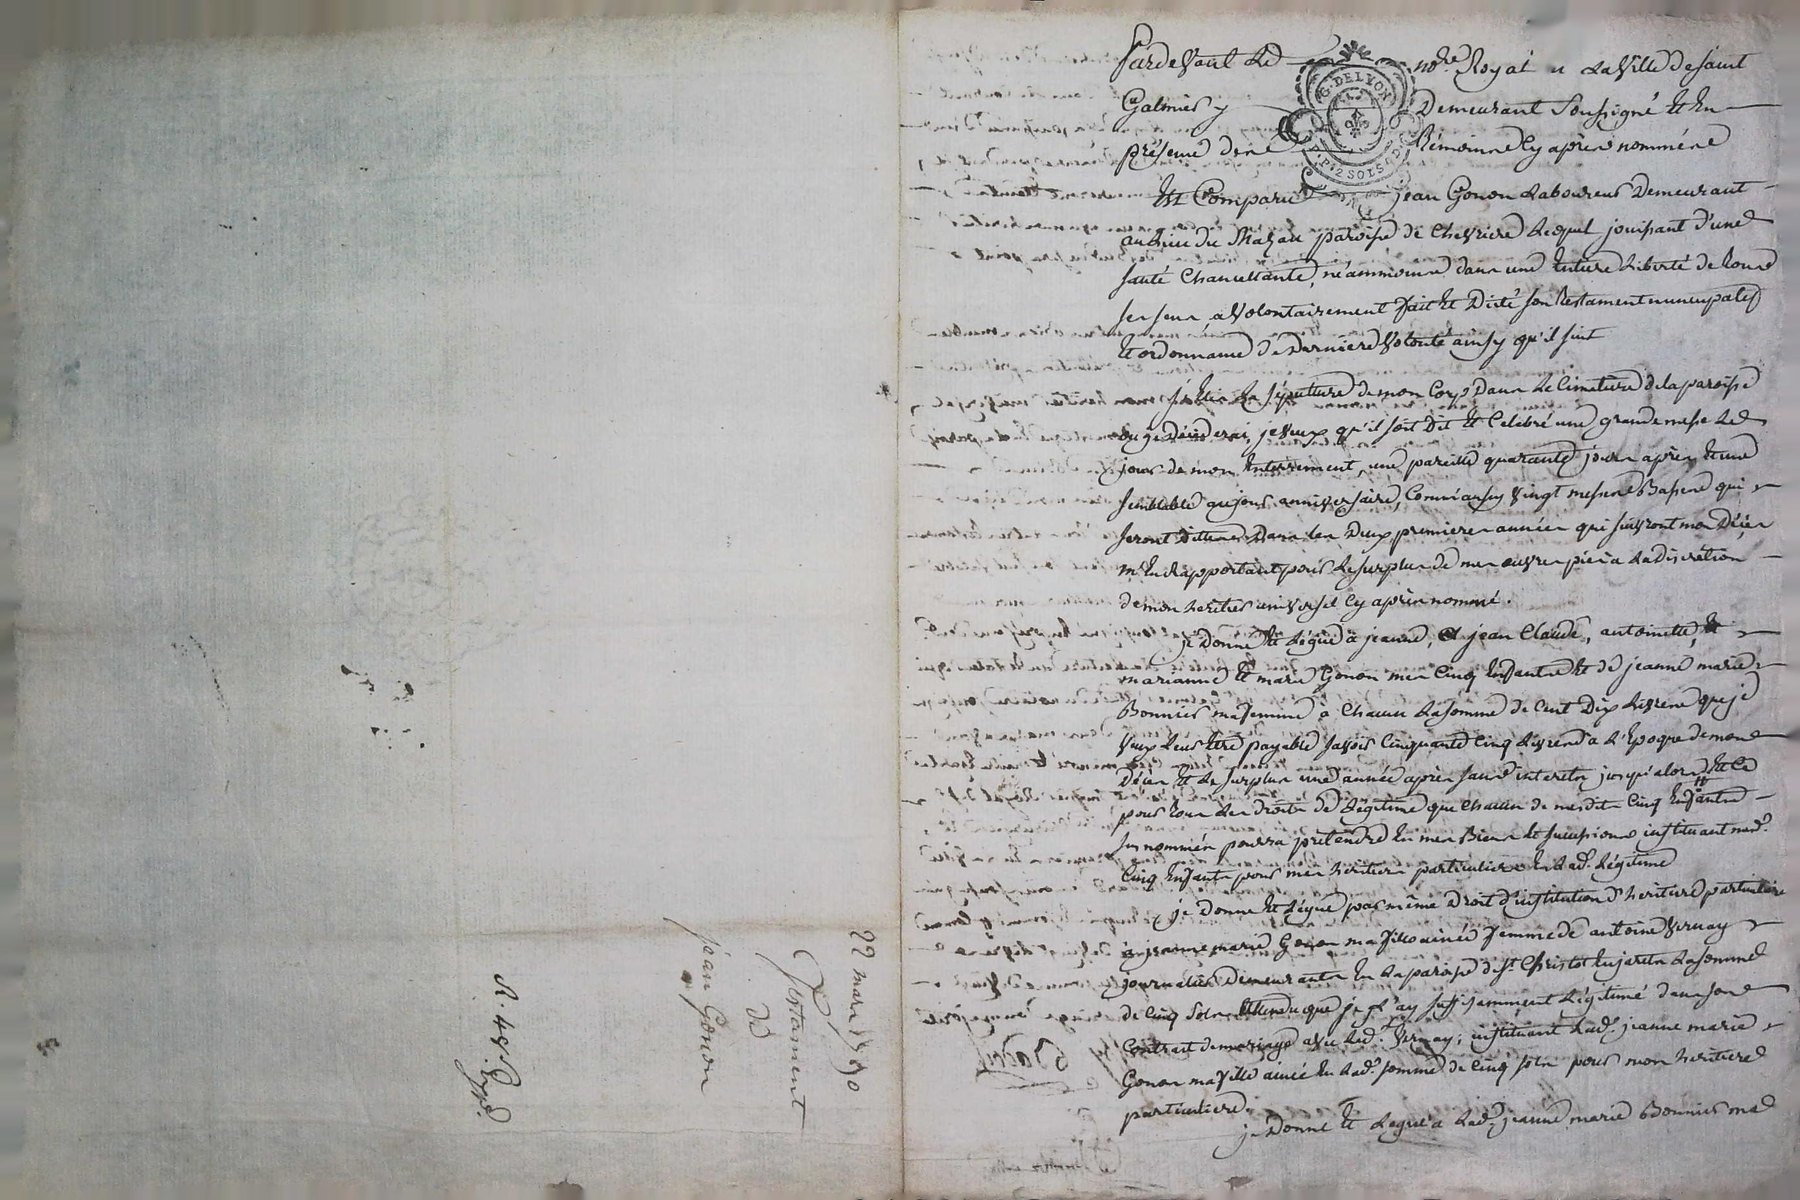 22 mars 1790
Testament
de
jean Gonon
R. 48 Exp.
Pardevant Le no.re Royal a La Ville de saint
Galmier y Demeurant Soussigné Et En
présence des témoins Cy après nommés
G. DE LYON
P. P. 2 SOLS
Est Comparu jean Gonon Laboureur Demeurant
au Lieu du Mazau paroisse de Chevriere Lequel jouissant d'une
santé Chancellante, néammoins dans une Entiere Liberté de tous
ses sens, a Volontairement fait Et Dicté son testament nuncupatif
Et ordonnance de Derniere Volonté ainsy qu'il suit
j'Elis La sépulture de mon Corps Dans Le Cimetiere de la paroisse
ou je Déciderai, je veux qu'il soit Dit Et Celebré une grande messe Le
jour de mon Enterrement, une pareille quarante jours après Et une
semblable au jour anniversaire, Comm'aussy vingt messes Basses qui
seront Dittes Dans les Deux premieres années qui suivront mon Décès
m'En Rapportant pour Le surplus de mes œuvres pies a La discretion
de mon heritier universel Cy après nommé.
je Donne Et Légue à jeanne, Et jean Claude, antoinette, Et
marianne Et marie Gonon mes Cinq Enfants Et de jeanne marie
Bonnier ma femme à Chacun La somme de Cent Dix Livres que je
veux Leur Etre payable savoir Cinquante Cinq Livres a L'Epoque de mon
Décès Et Le surplus une année après sans interets jusqu'alors Et Ce
pour tous Les droits de Légitime que Chacun de mesdits Cinq Enfants
sus nommés pourra pretendre En mes Biens Et succession instituant mesd.
Cinq Enfants pour mes heritiers particuliers En Lad. Légitime
je Donne Et Légue par même Droit d'institution d'heritiere particuliere
à jeanne marie Gonon ma fille ainée femme de antoine Vernay
journalier demeurants En La paroisse de St. Christot En jarets La somme
de Cinq sols attendu que je L'ay suffisamment Légitimé dans son
Contrat de mariage avec Led. Vernay; instituant Lad. jeanne marie
Gonon ma fille ainée En Lad. somme de Cinq sols pour mon heritiere
particuliere.
je Donne Et Legue a Lad. jeanne marie Bonnier ma